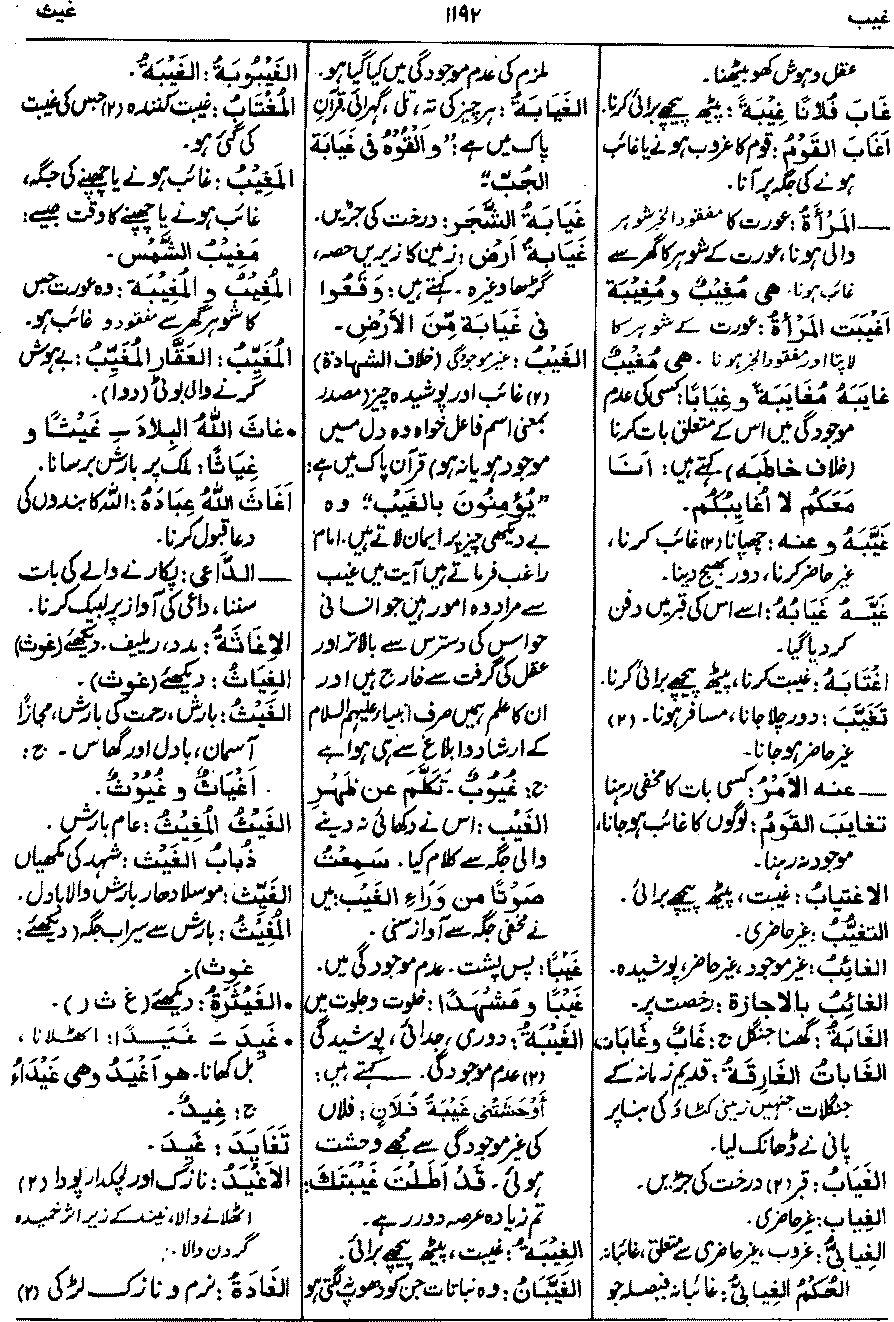 غیب ۱۱۹۲ غیث
عقل و ہوش کھو بیٹھنا۔
غَابَ فُلَانًا غِیْبَةً: پیٹھ پیچھے برائی کرنا۔
اَغَابَ القَوْمُ: قوم کا غروب ہونے یا غائب
ہونے کی جگہ پر آنا۔
— المَرْأَةُ: عورت کا مفقود الخبر شوہر
والی ہونا، عورت کے شوہر کا گھر سے
غائب ہونا۔ هی مُغِیْبٌ ومُغِیْبَة
اَغْیَبَت المَرْأَةُ: عورت کے شوہر کا
لاپتا اور مفقود الخبر ہونا۔ هی مُغْیِبٌ
غایَبَهٗ مُغَایَبَةً وغِیَابًا: کسی کی عدم
موجودگی میں اس کے متعلق بات کرنا
(خلاف خاطبه) کہتے ہیں: اَنَا
مَعَكُم لا أُغَایِبُكُم۔
غَیَّبَهُ و عنه: چھپانا (۲) غائب کرنا،
غیر حاضر کرنا، دور بھیج دینا۔
غَیَّبَهُ غَیَابُهُ: اسے اس کی قبر میں دفن
کر دیا گیا۔
اغْتَابَهُ: غیبت کرنا، پیٹھ پیچھے برائی کرنا۔
تَغَیَّبَ: دور چلا جانا، مسافر ہونا۔ (۲)
غیر حاضر ہو جانا۔
— عنه الأمْرُ: کسی بات کا مخفی رہنا
تغایَبَ القومُ: لوگوں کا غائب ہو جانا،
موجود نہ رہنا۔
الاغتیابُ: غیبت، پیٹھ پیچھے برائی۔
التغیُّبُ: غیر حاضری۔
الغائِبُ: غیر موجود، غیر حاضر، پوشیدہ۔
الغائِبُ بالاجازة: رخصت پر۔
الغَابَةُ: گھنا جنگل ج: غَابٌ وغَابَات
الغَابَاتُ الغَارِقَةُ: قدیم زمانہ کے
جنگلات جنہیں زمینی کٹاؤ کی بنا پر
پانی نے ڈھانک لیا۔
الغَیَابُ: قبر (۲) درخت کی جڑیں۔
الغِیاب: غیر حاضری۔
الغِیابیُّ: غروب، غیر حاضری سے متعلق، غائبانہ
الحُكْمُ الغِیابیُّ: غائبانہ فیصلہ جو
ملزم کی عدم موجودگی میں کیا گیا ہو۔
الغَیَابَةُ: ہر چیز کی تہ، تل، گہرائی، قرآن
پاک میں ہے: ”وَاَلْقُوْهُ فی غَیَابَة
الجُبّ“
غَیَابَةُ الشَّجَر: درخت کی جڑیں۔
غَیَابَةُ اَرْض: زمین کا زیریں حصہ،
گڑھا وغیرہ۔ کہتے ہیں: وَقَعُوا
فی غَیَابَة مِّنَ الأَرْضِ۔
الغَیْبُ: غیر موجودگی (خلاف الشهادة)
(۲) غائب اور پوشیدہ چیز (مصدر
بمعنی اسم فاعل خواہ وہ دل میں
موجود ہو یا نہ ہو) قرآن پاک میں ہے:
”یُؤْمِنُونَ بالغَیْب“ وہ
بے دیکھی چیز پر ایمان لاتے ہیں۔ امام
راغب فرماتے ہیں آیت میں غیب
سے مراد وہ امور ہیں جو انسانی
حواس کی دسترس سے بالاتر اور
عقل کی گرفت سے خارج ہیں اور
ان کا علم ہمیں صرف انبیاء علیہم السلام
کے ارشاد و ابلاغ سے ہی ہوا ہے
ج: غُیُوبٌ۔ تَكَلَّمَ عن ظَهْرِ
الغَیْب: اس نے دکھائی نہ دینے
والی جگہ سے کلام کیا۔ سَمِعْتُ
صَوْتًا من وَرَاءِ الغَیْب: میں
نے مخفی جگہ سے آواز سنی۔
غَیْبًا: پس پشت۔ عدم موجودگی میں۔
غَیْبًا ومَشْهَدًا: خلوت و جلوت میں
الغَیْبَةُ: دوری، جدائی، پوشیدگی
(۲) عدم موجودگی۔ کہتے ہیں:
أَوْحَشَتْنی غَیْبَةُ فُلَانٍ: فلاں
کی غیر موجودگی سے مجھے وحشت
ہوئی۔ قَدْ أَطَلْتَ غَیْبَتَكَ:
تم زیادہ عرصہ دور رہے۔
الغِیْبَةُ: غیبت، پیٹھ پیچھے برائی۔
الغَیْبَان: وہ نباتات جن کو دھوپ نہ لگتی ہو
الغَیْبُوبَةُ: الغَیْبَةُ۔
المُغْتَابُ: غیبت کنندہ (۲) جس کی غیبت
کی گئی ہو۔
المَغِیْبُ: غائب ہونے یا چھپنے کی جگہ،
غائب ہونے یا چھپنے کا وقت جیسے:
مَغِیْبُ الشَّمْس۔
المُغِیْبُ و المُغِیْبَة: وہ عورت جس
کا شوہر گھر سے مفقود و غائب ہو۔
المُغَیِّبُ: العَقَّار المُغَیِّبُ: بے ہوش
کرنے والی بوٹی (دوا)۔
• غاثَ اللهُ البِلادَ ـِ غَیْثًا و
غِیَاثًا: ملک پر بارش برسانا۔
اَغَاثَ اللهُ عِبَادَهٗ: اللہ کا بندوں کی
دعا قبول کرنا۔
— الدَّاعِی: پکارنے والے کی بات
سننا، داعی کی آواز پر لبیک کرنا۔
الإغَاثَةُ: مدد، ریلیف۔ دیکھئے (غوث)
الغِیَاثُ: دیکھئے (غوث)۔
الغَیْثُ: بارش، رحمت کی بارش، مجازًا
آسمان، بادل اور گھاس۔ ج:
اَغْیَاثٌ و غُیُوْثٌ۔
الغَیْثُ المُغِیْثُ: عام بارش۔
ذُبابُ الغَیْث: شہد کی مکھیاں
الغَیِّث: موسلا دھار بارش والا بادل۔
المُغِیْثُ: بارش سے سیراب جگہ (دیکھئے:
غوث)۔
• الغَیْثَرَةُ: دیکھئے (غ ث ر)۔
• غَیِدَ ـَ غَیَدًا: اٹھلانا،
بل کھانا۔ هو اَغْیَدُ وهی غَیْدَاءُ
ج: غِیدٌ۔
تَغَایَدَ: غَیِدَ۔
الأغْیَدُ: نازک اور لچکدار پودا (۲)
اٹھلانے والا، نیند کے زیر اثر خمیدہ
گردن والا۔
الغَادَةُ: نرم و نازک لڑکی (۲)